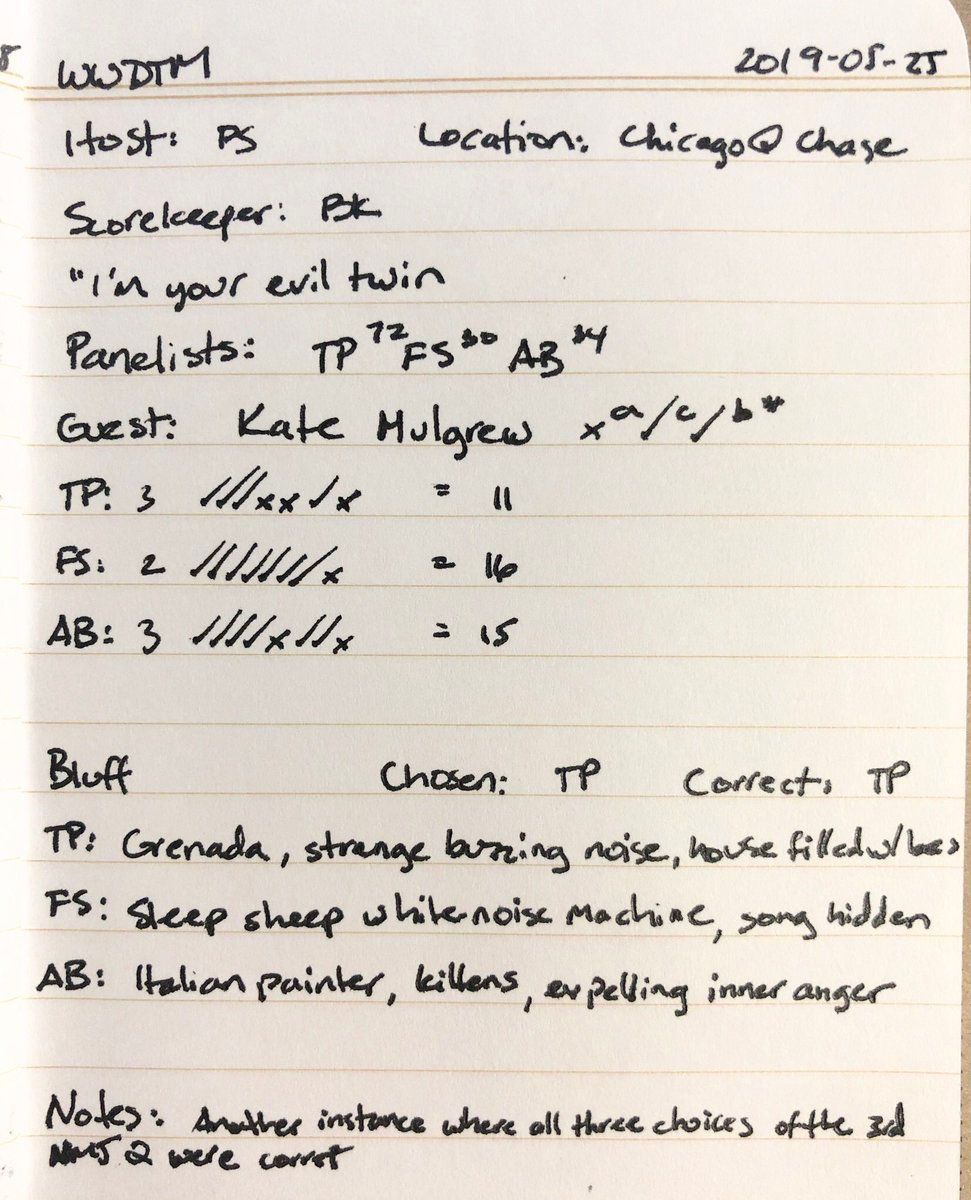 8
WWDTM 2019-05-25
Host: PS Location: Chicago@Chase
Scorekeeper: BK
"I'm your evil twin
Panelists: TP 72 FS 30 AB 34
Guest: Kate Mulgrew x a/c/b*
TP: 3 ///xx/x = 11
FS: 2 ///////x = 16
AB: 3 ////x//x = 15
Bluff Chosen: TP Correct: TP
TP: Grenada, strange buzzing noise, house filled w/ bees
FS: Sleep sheep white noise machine, song hidden
AB: Italian painter, kittens, expelling inner anger
Notes: Another instance where all three choices of the 3rd
NMJ Q were corret